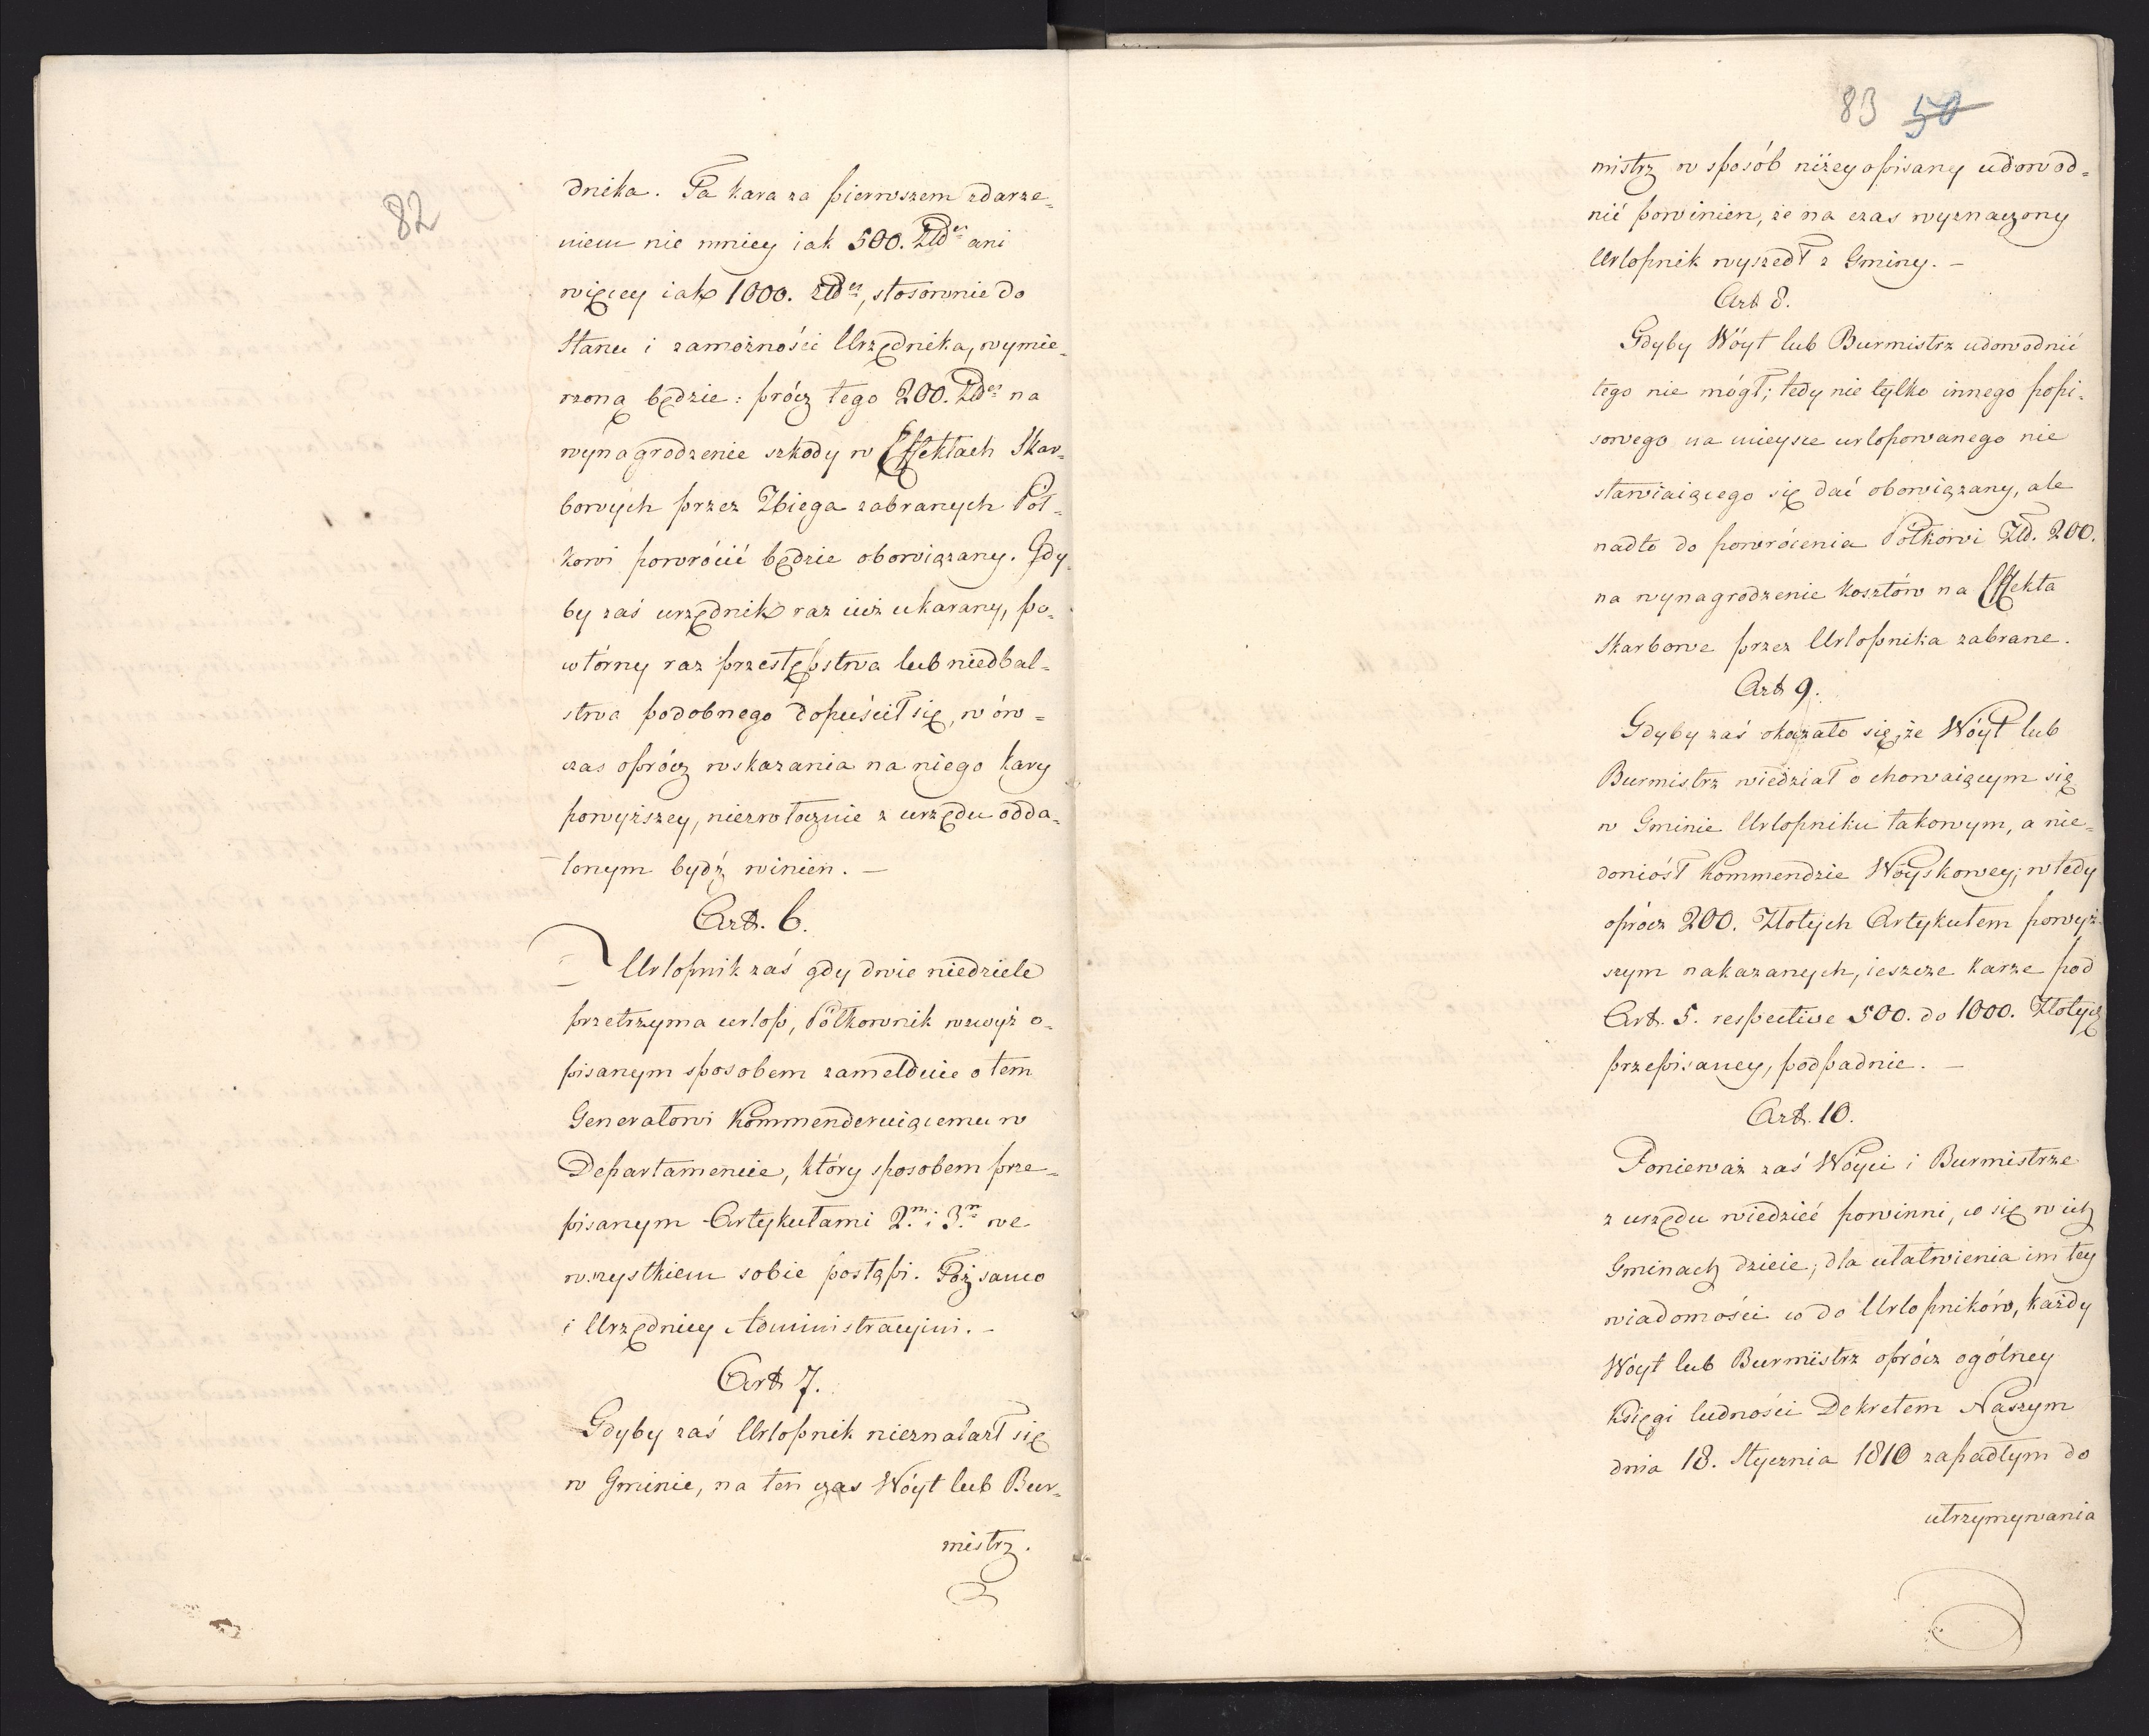 82
dnika. Ta kara za pierwszem zdarze=
niem nie mniey iak 500. Złd ani
więcey iak 1000. Złd, stosownie do
Stanu i zamożności Urzędnika, wymie=
rzoną będzie: prócz tego 200. Złd na
wynagrodzenie szkody w Effektach Skar=
bowych przez Zbiega zabranych Pół=
kowi powrócić będzie obowiązany. Gdy
by zaś urzędnik raz iuż ukarany, po=
wtórny raz przestępstwa lub niedbal=
stwa podobnego dopuścił się, w ów=
czas oprócz wskazania na niego kary
powyższey, niezwłocznie z urzędu odda=
lonym bydź winien. —
Art. 6.
Urlopnik zaś gdy dwie niedziele
przetrzyma urlop, Półkownik wzwyż o=
pisanym sposobem zamelduie o tem
Generałowi Kommenderuiącemu w
Departamencie, który sposobem prze=
pisanym Artykułami 2.m i 3.m we
wszystkiem sobie postąpi. Toż samo
i Urzędnicy Administracyini. —
Art 7.
Gdyby zaś Urlopnik nieznalazł się
w Gminie, na ten czas Wóyt lub Bur=
mistrz.
83 50
mistrz w sposób niżey opisany udowod=
nić powinien, że na czas wyznaczony
Urlopnik wyszedł z Gminy. —
Art 8.
Gdyby Wóyt lub Burmistrz udowodnić
tego nie mógł; tedy nie tylko innego popi=
sowego na mieysce urlopowanego nie
stawiaiącego się dać obowiązany, ale
nadto do powrócenia Półkowi Złd. 200.
na wynagrodzenie kosztów na Effekta
Skarbowe przez Urlopnika zabrane.
Art 9.
Gdyby zaś okazało się, że Wóyt lub
Burmistrz wiedział o chowaiącym się
w Gminie Urlopniku takowym, a nie=
doniósł Kommendzie Woyskowey; wtedy
oprócz 200. Złotych Artykułem powyż=
szym nakazanych, ieszcze karze pod
Art. 5. respective 500. do 1000. Złotych
przepisaney, podpadnie. —
Art. 10.
Ponieważ zaś Wóyci i Burmistrze
z urzędu wiedzieć powinni, co się w ich
Gminach dzieie; dla ułatwienia im tey
wiadomości co do Urlopników, każdy
Wóyt lub Burmistrz oprócz ogólney
Księgi ludności Dekretem Naszym
dnia 18. Stycznia 1810 zapadłym do
utrzymywania